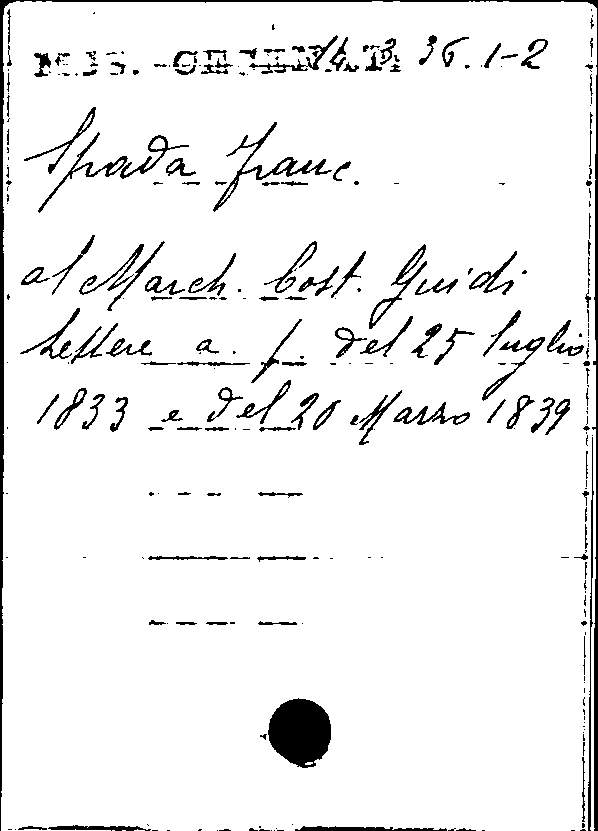 MSS. 36. 1-2
Spada Franc.
al March. Cost. Guidi
Lettere a. f. del 25 luglio
1833 e del 20 Marzo 1839